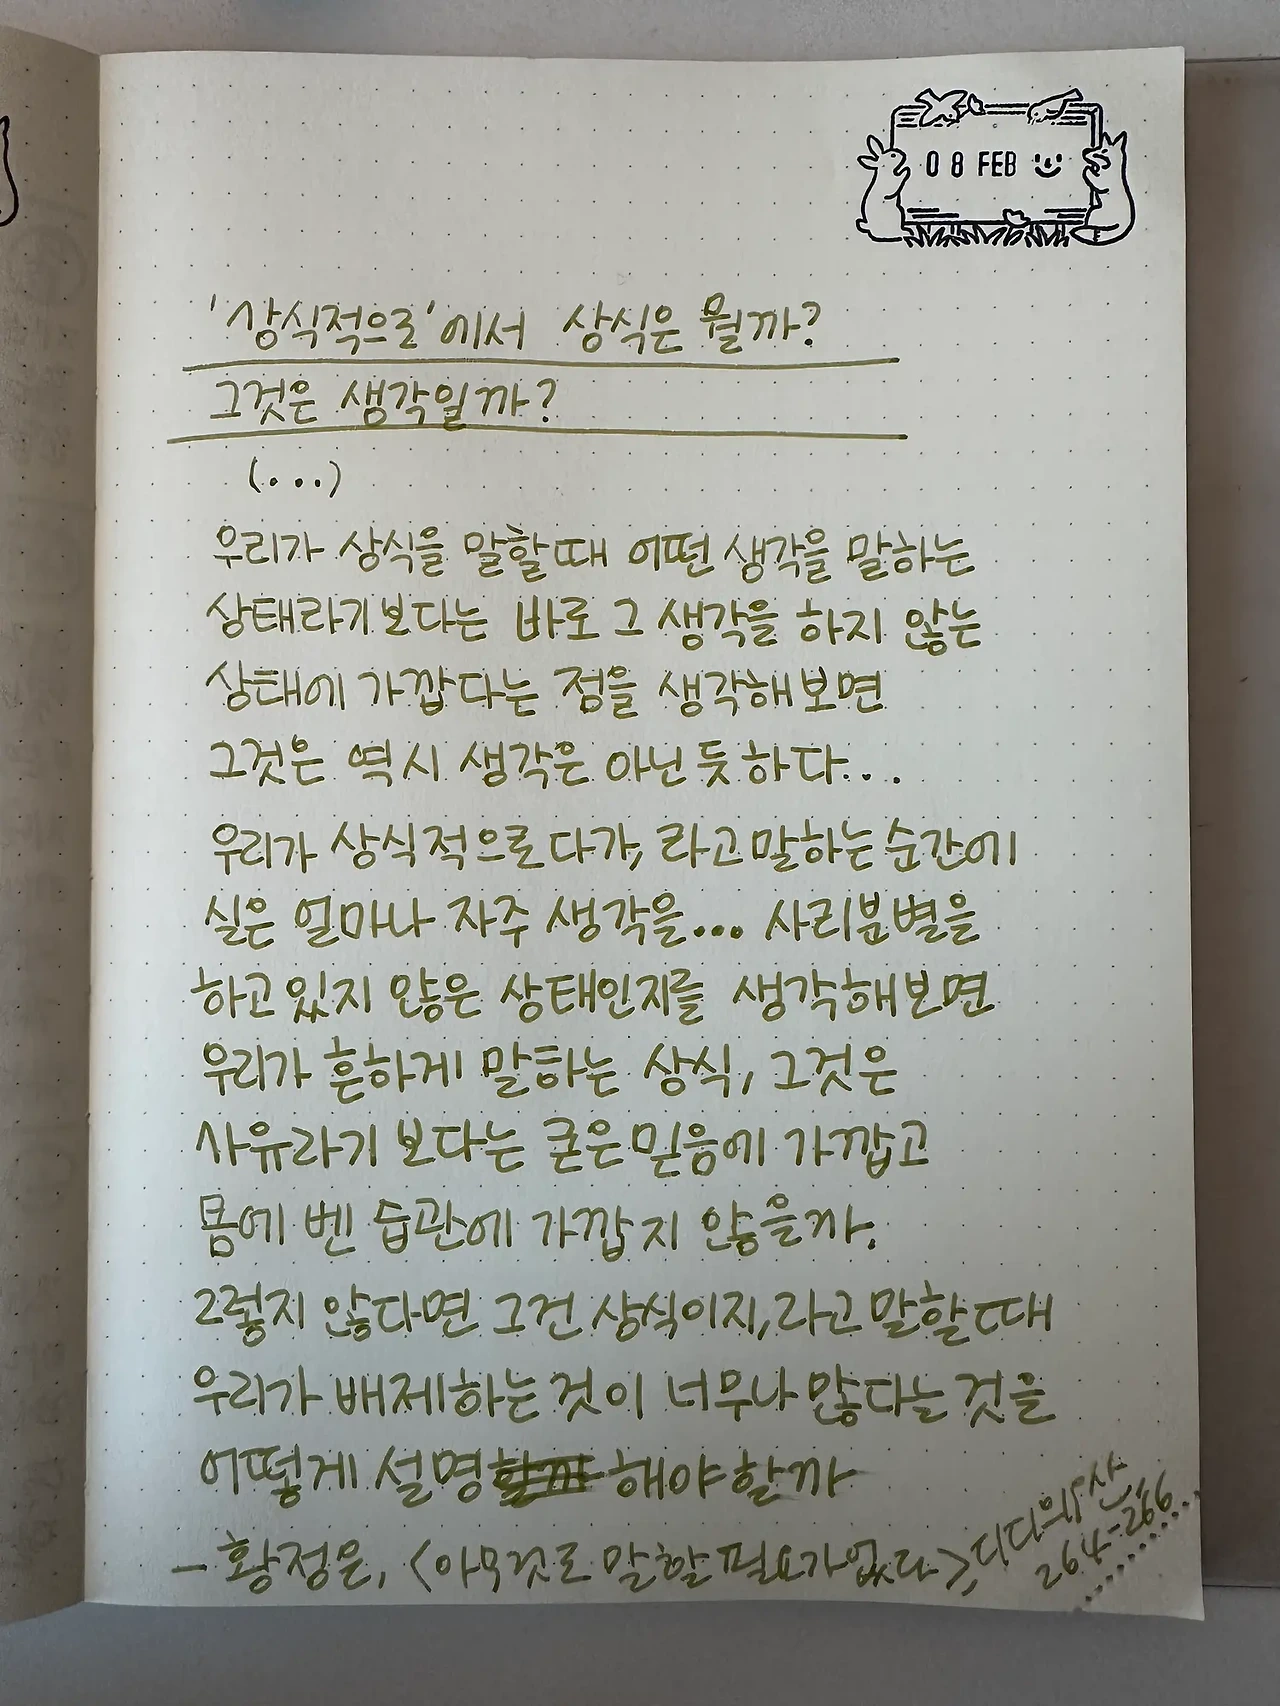 08 FEB
'상식적으로'에서 상식은 뭘까?
그것은 생각일까?
(...)
우리가 상식을 말할 때 어떤 생각을 말하는
상태라기보다는 바로 그 생각을 하지 않는
상태에 가깝다는 점을 생각해보면
그것은 역시 생각은 아닌 듯하다...
우리가 상식적으로다가, 라고 말하는 순간에
실은 얼마나 자주 생각을... 사리분별을
하고 있지 않은 상태인지를 생각해보면
우리가 흔하게 말하는 상식, 그것은
사유라기 보다는 굳은 믿음에 가깝고
몸에 벤 습관에 가깝지 않을까.
그렇지 않다면 그건 상식이지, 라고 말할 때
우리가 배제하는 것이 너무나 많다는 것을
어떻게 설명 해야 할까
- 황정은, <아무것도 말할 필요가 없다>, 디디의 우산
264-266